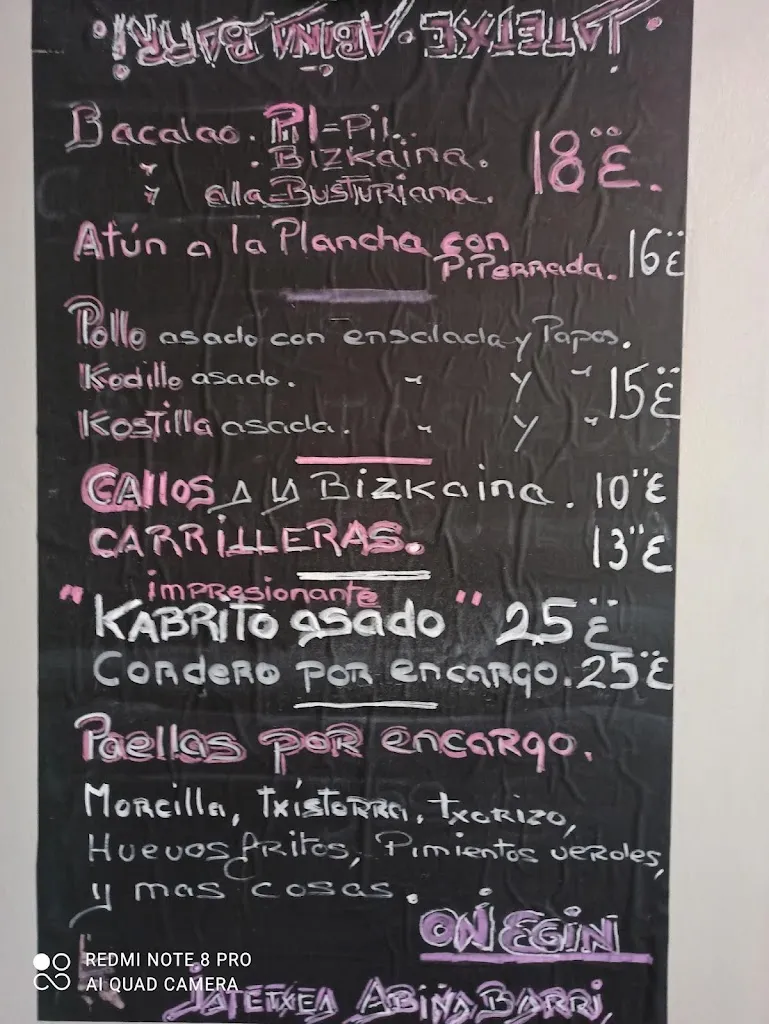 JATETXE · ABIÑA BARRI!
Bacalao. Pil=Pil..
" . Bizkaina.
" alla=Busturiana. 18 €.
Atún a la Plancha con
Piperrada. 16 €
Pollo asado con ensalada y Papas.
Kodillo asado. " y " 15 €
Kostilla asada. " y "
CAllos A lA Bizkaina. 10 €
CARRILLERAS. 13 €
impresionante
" KABRITO asado " 25 €
Cordero por encargo. 25 €
Paellas por encargo.
Morcilla, txistorra, txorizo,
Huevos fritos, Pimientos verdes,
y mas cosas.
ON EGIN
JATETXEA ABIÑA BARRI,
REDMI NOTE 8 PRO
AI QUAD CAMERA